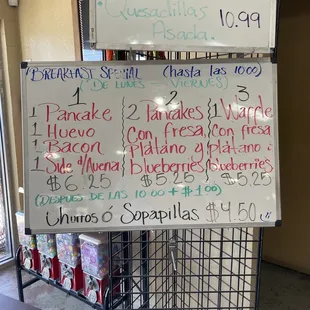 Quesadillas 10.99
Asada
BREAKFAST SPECIAL (hasta las 10:00)
(DE LUNES - VIERNES)
1 2 3
1 Pancake 2 Pancakes 1 Waffle
1 Huevo Con fresa, Con fresa
1 Bacon Plátano y plátano y
1 Side d/Avena blueberries blueberries
$6.25 $5.25 $5.25
(DESPUES DE LAS 10:00 + $1.00)
Churros ó Sopapillas $4.50